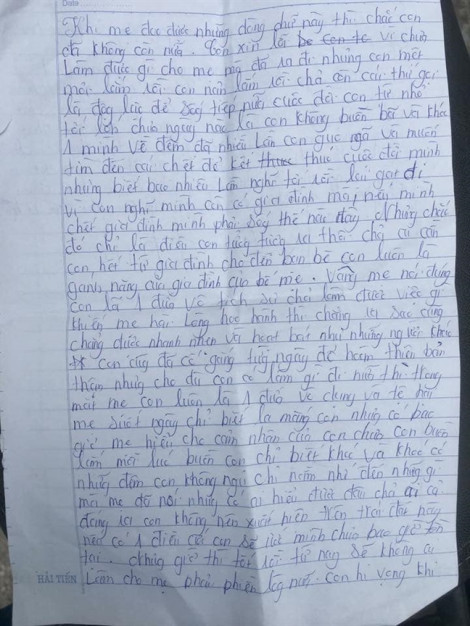 Khi mẹ đọc được những dòng chữ này thì chắc con
đã không còn nữa. Con xin lỗi vì chưa
làm được gì cho mẹ mà đã ra đi nhưng con mệt
mỏi lắm rồi con nản lắm rồi chả còn cái thứ gọi
là động lực để sống tiếp nữa cuộc đời con từ nhỏ
tới lớn chưa ngày nào là con không buồn bã và khóc
1 mình về đêm đã nhiều lần con gục ngã và muốn
tìm đến cái chết để kết thúc cuộc đời mình
nhưng biết bao nhiêu lần nghĩ tới rồi lại gạt đi
vì con nghĩ mình còn có gia đình mà, nếu mình
chết gia đình mình phải sống thế nào đây. Nhưng chắc
đó chỉ là điều con tưởng tượng ra thôi chả ai cần
con, hết từ gia đình cho đến bạn bè con luôn là
gánh nặng của gia đình của bố mẹ. Vâng mẹ nói đúng
con là 1 đứa vô tích sự chả làm được việc gì
khiến mẹ hài lòng học hành thì chẳng ra sao cũng
chẳng được nhanh nhẹn và hoạt bát như những người khác
con cũng đã cố gắng từng ngày để hoàn thiện bản
thân nhưng cho dù con có làm gì đi nữa thì trong
mắt mẹ con luôn là 1 đứa vô dụng và tồi
mẹ suốt ngày chỉ biết la mắng con nhưng có bao
giờ mẹ hiểu cho cảm nhận của con chưa con buồn
lắm mỗi lúc buồn con chỉ biết khóc và khóc có
những đêm con không ngủ chỉ nằm nhớ đến những gì
mà mẹ đã nói nhưng có ai hiểu được đâu chả ai cả
đáng ra con không nên xuất hiện trên trái đất này
nếu có 1 điều ước con sẽ ước mình chưa bao giờ tồn
tại. Nhưng giờ thì tốt rồi từ nay sẽ không ai
làm cho mẹ phải phiền lòng nữa. con hi vọng khi
HẢI TIẾN